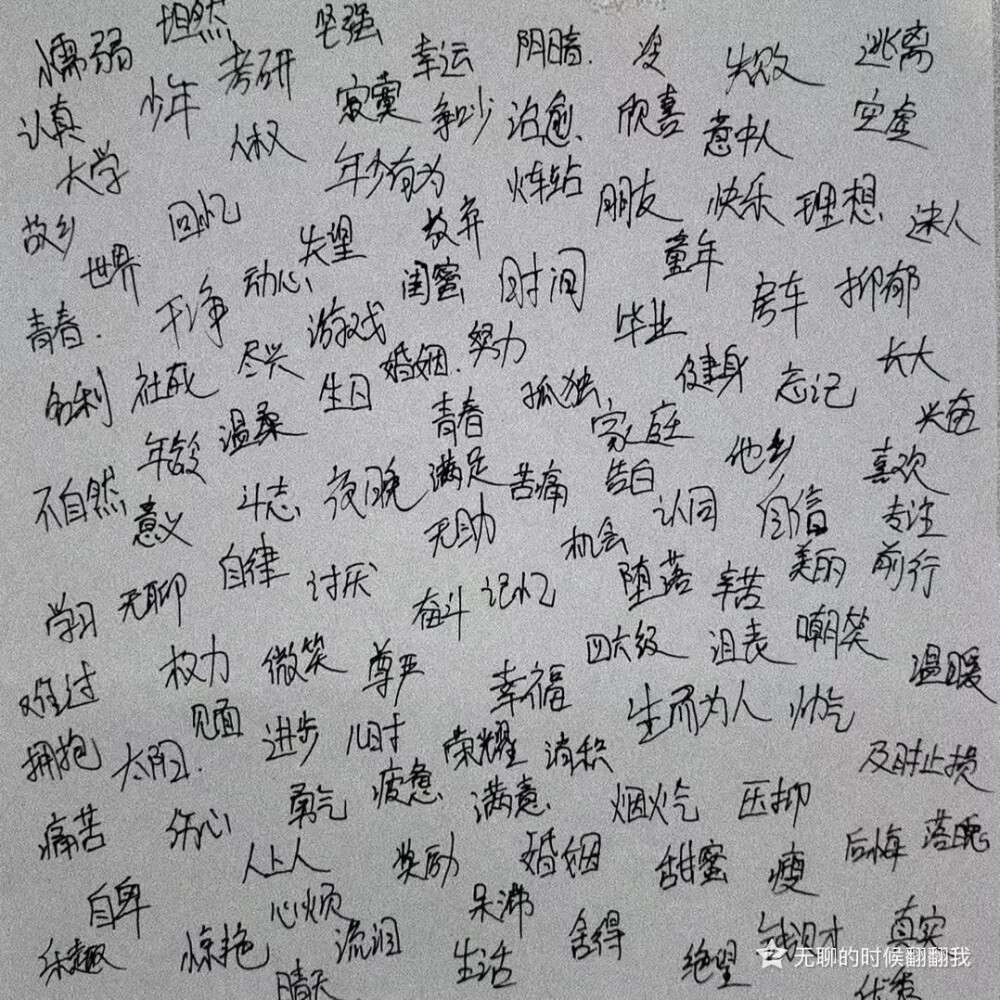 懦弱 坦然 坚强 幸运 阴暗. 失败 逃离
认真 少年 考研 寂寞 治愈. 欣喜 意中人 空虚
大学 人权 年少有为 火车站 朋友 快乐 理想 迷人
故乡 回忆 失望 放弃 童年
世界 动心 闺蜜 时间 房车 抑郁
青春. 干净 游戏 毕业
名利 社死 尽兴 婚姻. 努力 健身 忘记 长大
年龄 温柔 生日 青春 孤独 家庭 兴奋
不自然 意义 斗志 夜晚 满足 苦痛 告白 他乡 喜欢
无助 认同 自信 专注
学习 无聊 自律 讨厌 机会 美丽 前行
奋斗 记忆 堕落 辛苦
难过 权力 微笑 尊严 幸福 四六级 沮丧 嘲笑 温暖
拥抱 太阳. 见面 进步 儿时 荣耀 消积 生而为人 帅气
及时止损
痛苦 伤心 勇气 疲惫 满意 烟火气 压抑
人上人 奖励 婚姻 甜蜜 瘦 后悔 落魄
自卑 心烦
乐趣 惊艳 流泪 生活 舍得 绝望 真实
晴天
无聊的时候翻翻我